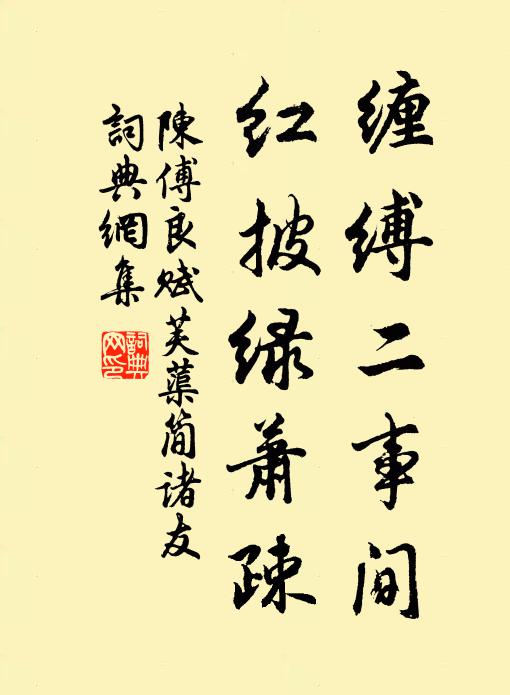 缠缚二事间
红披绿萧疎
陳傅良赋芙蕖简诸友
詞典網集
詞典網印